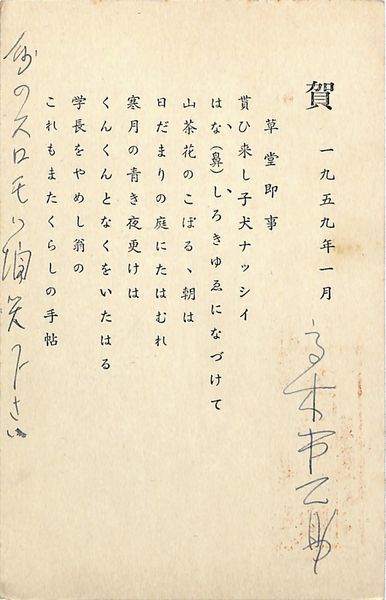 賀
一九五九年一月
草堂即事
貰ひ来し子犬ナッシイ
はな(鼻)しろきゆゑになづけて
山茶花のこぼるゝ朝は
日だまりの庭にたはむれ
寒月の青き夜更けは
くんくんとなくをいたはる
学長をやめし翁の
これもまたくらしの手帖
高木市之助
のスロモハ御笑下さい